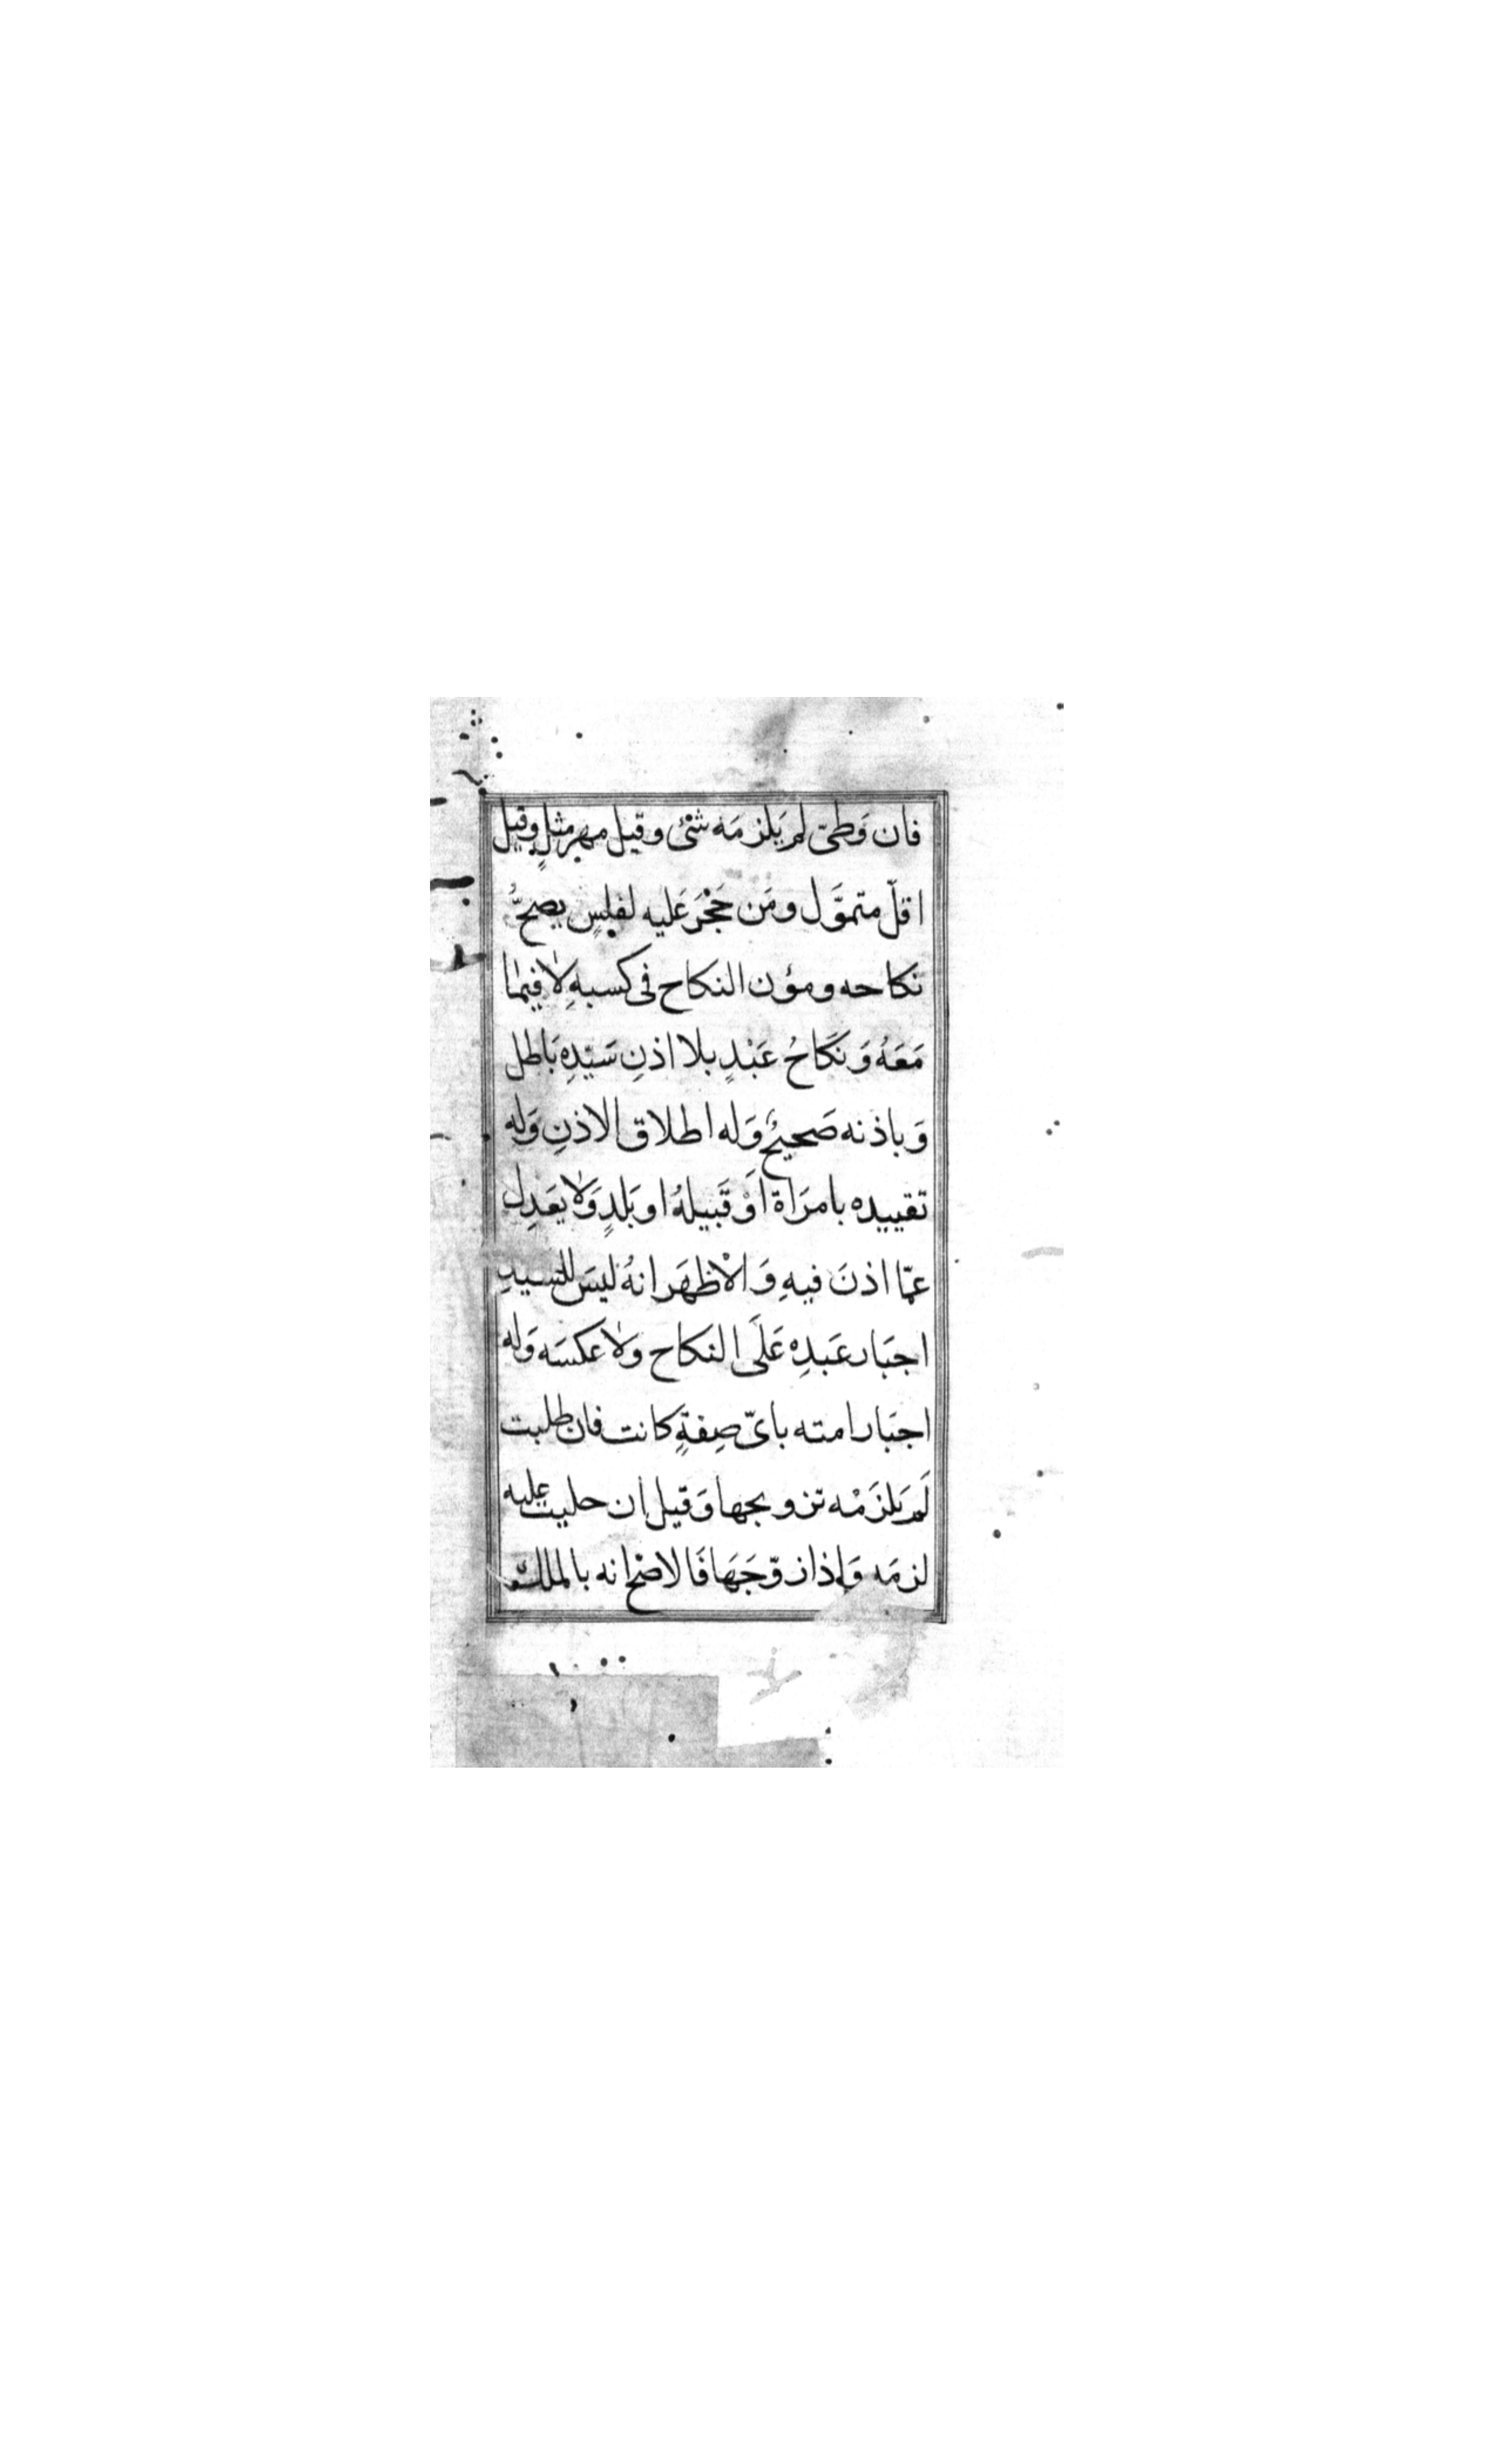 فان وَطىّ لم يَلزمَه شئ وقيل مهر مثلٍ وقيل
اقلّ متموَّل ومَن حَجْرَ عَليه لفلسٍ يصحُّ
نكاحه ومؤن النكاح فى كسبهِ لا فيما
مَعَهُ وَنكَاحُ عَبْدٍ بلا اذنِ سَيّدِه بَاطل
وَباذنه صَحيحٌ وَله اطلاق الاذنِ وَله
تقييده بامرَاة اَوْ قَبيلهُ او بَلدٍ وَلا يَعَدِل
عمّا اذنَ فيهِ وَالاْظهَر انهُ ليسَ للسيدِ
اجبَار عَبدِه عَلَى النكَاح ولا عكسَه وَله
اجبَار امته باىّ صِفةٍ كانت فان طلبت
لَم يَلزَمْه تزويجها وَقيل ان حليت عليه
لزمَه وَاذا زوّجَهَا فَالاصّح انه بالملك